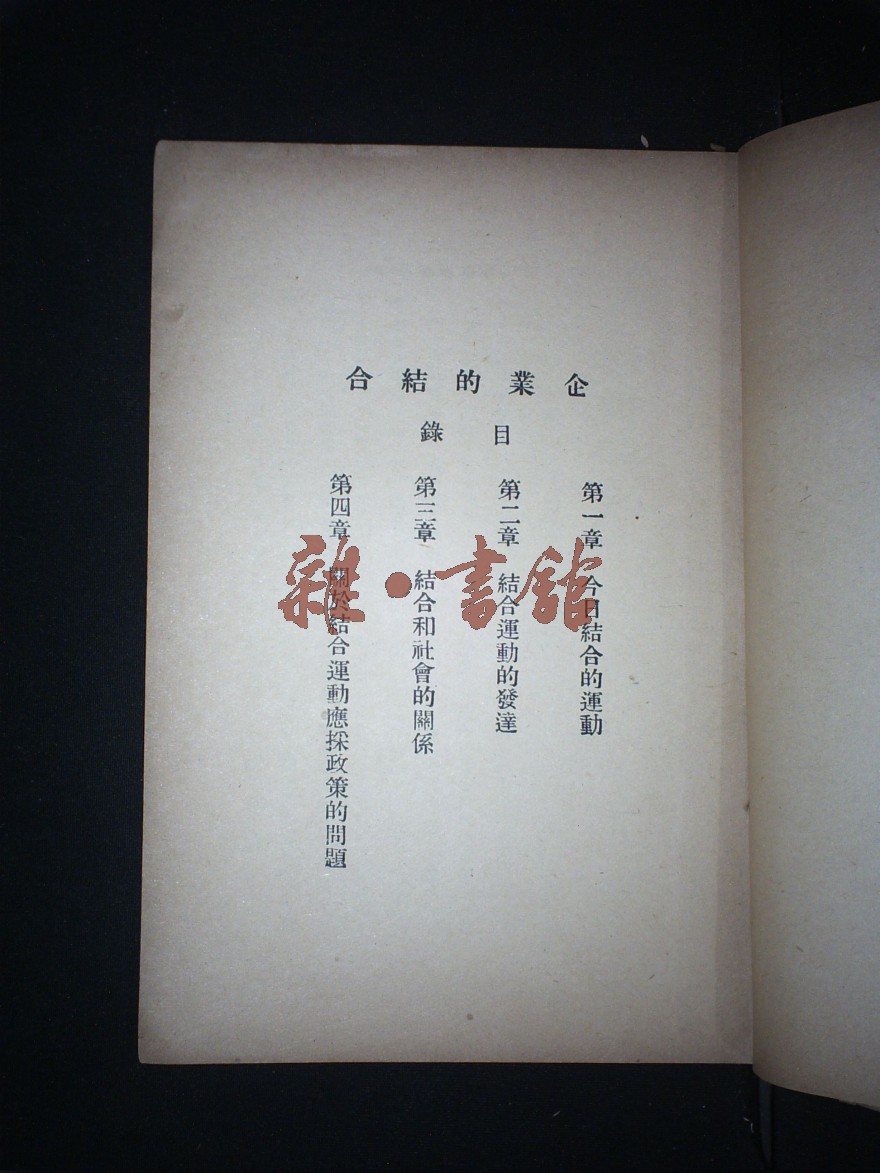 企業的結合
目錄
第一章 今日結合的運動
第二章 結合運動的發達
第三章 結合和社會的關係
第四章 關於結合運動應採政策的問題
雜・書館